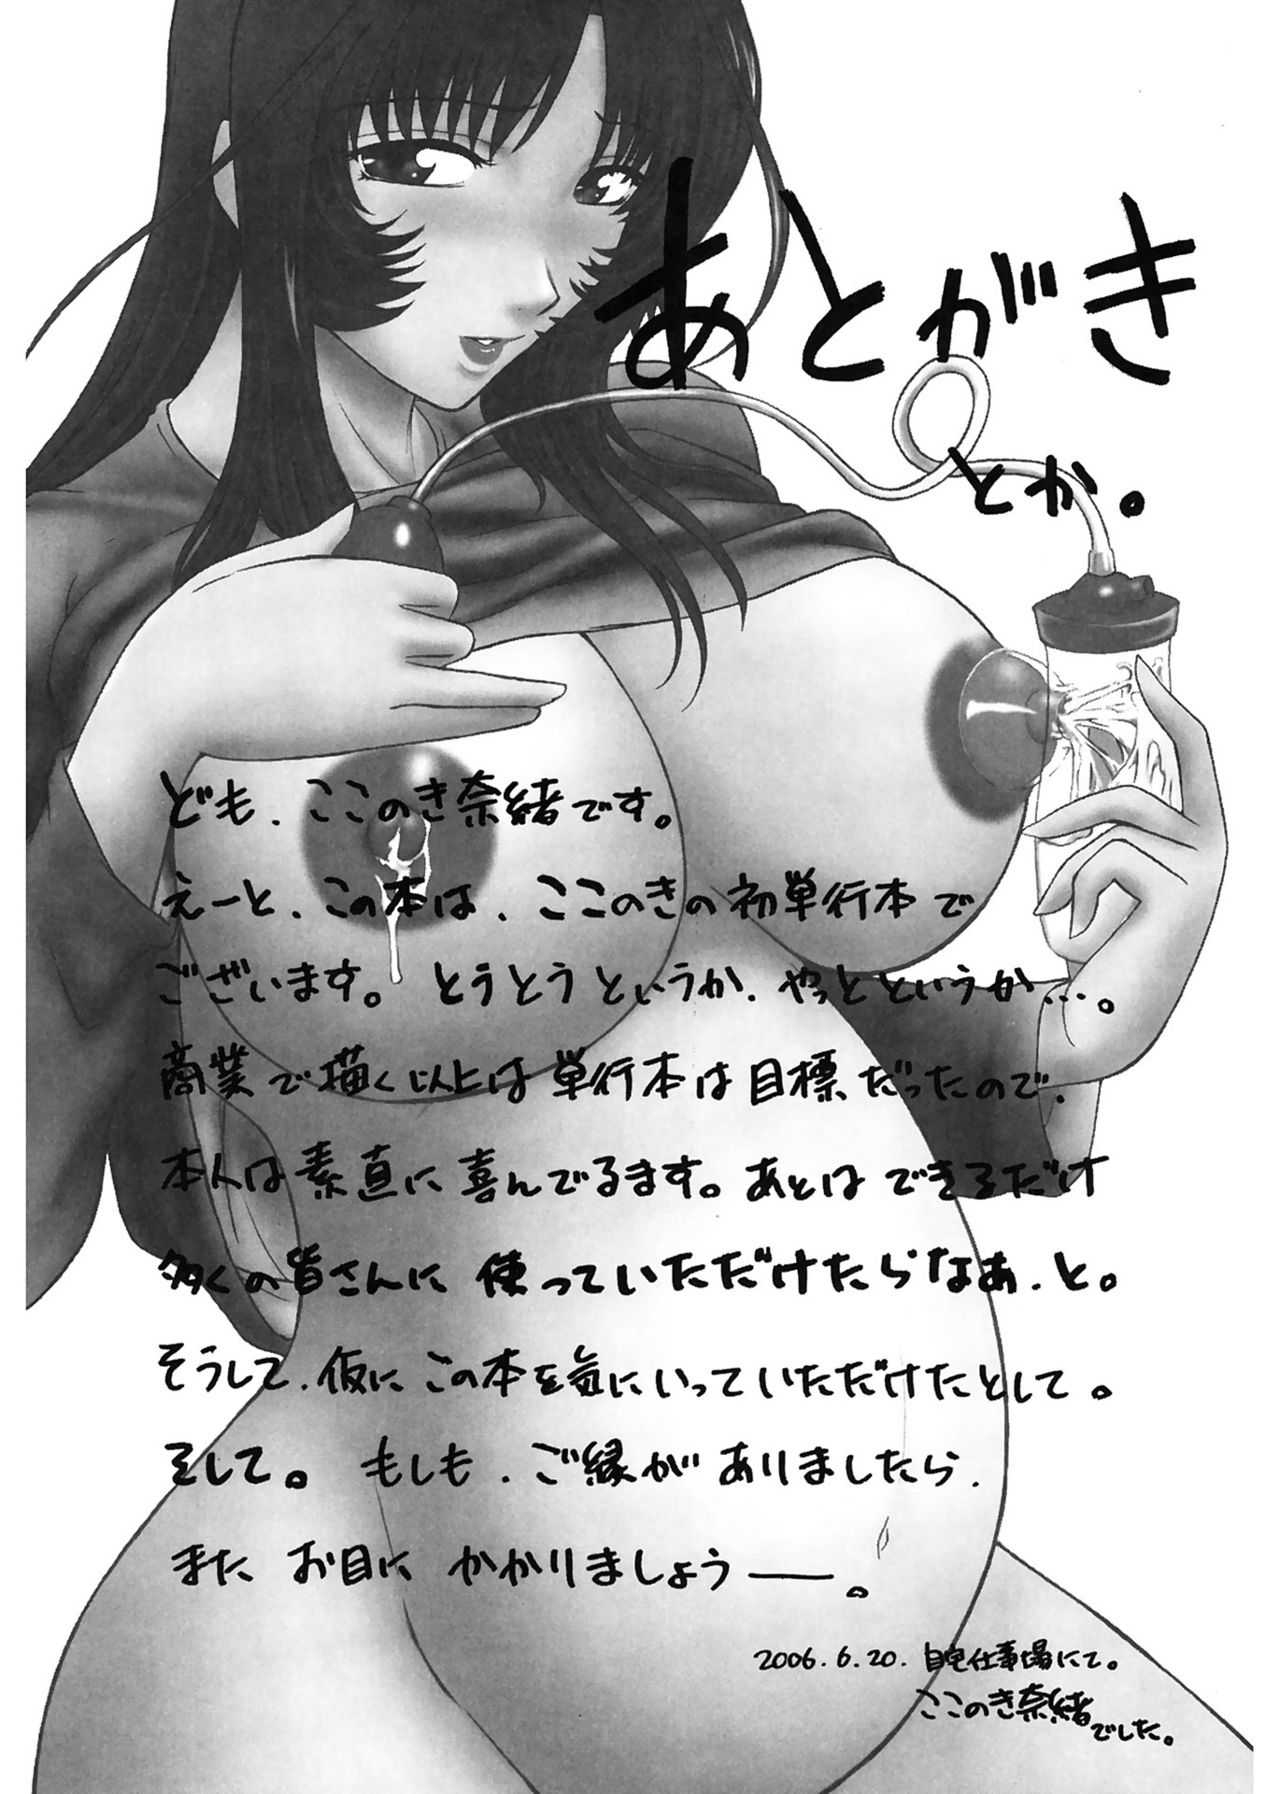 あとがき
とか。
ども、ここのき奈緒です。
えーと、この本は、ここのきの初単行本で
ございます。とうとうというか、やっとというか…。
商業で描く以上は単行本は目標だったので、
本人は素直に喜んでるます。あとはできるだけ
多くの皆さんに使っていただけたらなぁ、と。
そうして、仮にこの本を気にいっていただけたとして。
そして。もしも、ご縁がありましたら、
またお目にかかりましょう――。
2006.6.20. 自宅仕事場にて。
ここのき奈緒でした。